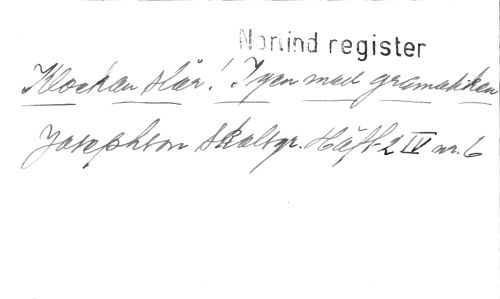 Norlind register
Klockan slår! Igen med gramatiken
Josephson Skaltgr. Häft 2 IV nr. 6